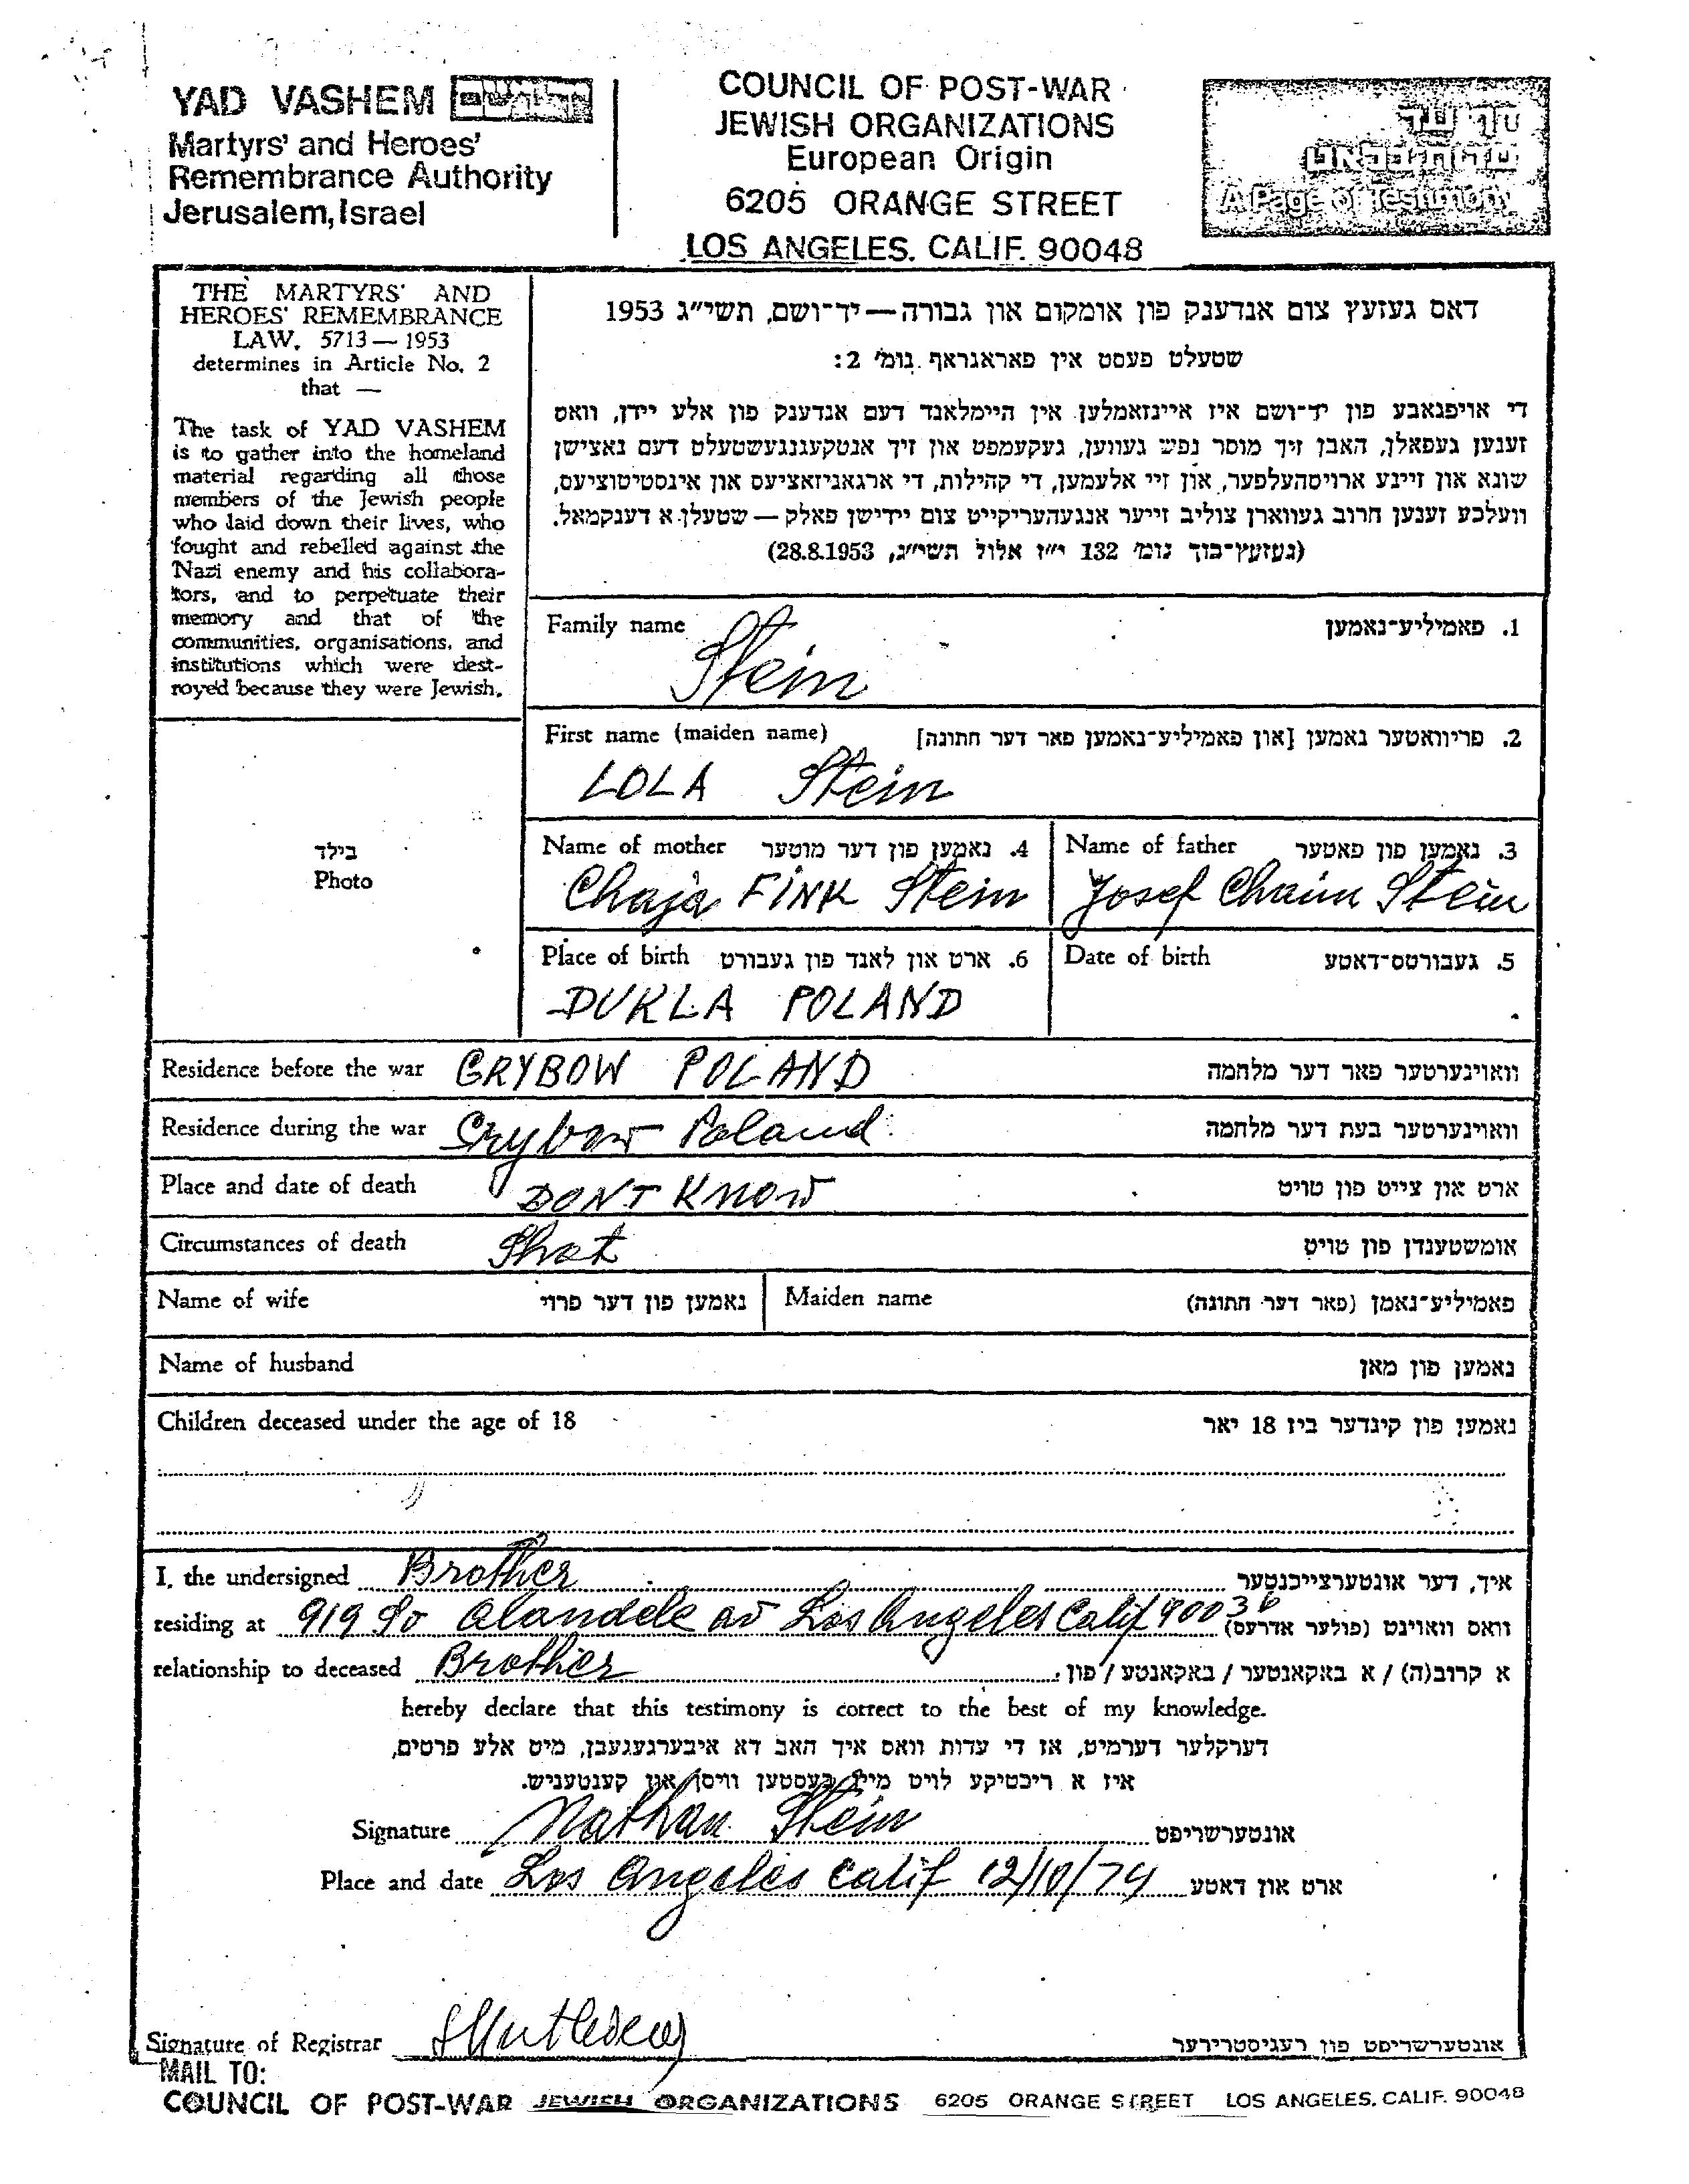 YAD VASHEM יד ושם
Martyrs' and Heroes'
Remembrance Authority
Jerusalem, Israel
COUNCIL OF POST-WAR
JEWISH ORGANIZATIONS
European Origin
6205 ORANGE STREET
LOS ANGELES. CALIF. 90048
A Page of Testimony
THE MARTYRS' AND
HEROES' REMEMBRANCE
LAW, 5713 — 1953
determines in Article No. 2
that —
The task of YAD VASHEM
is to gather into the homeland
material regarding all those
members of the Jewish people
who laid down their lives, who
fought and rebelled against the
Nazi enemy and his collabora-
tors, and to perpetuate their
memory and that of the
communities, organisations, and
institutions which were dest-
royed because they were Jewish.
דאס געזעץ צום אנדענק פון אומקום און גבורה — יד־ושם, תשי״ג 1953
שטעלט פעסט אין פאראגראף נומ׳ 2:
די אויפגאבע פון יד־ושם איז איינזאמלען אין היימלאנד דעם אנדענק פון אלע יידן, וואס
זענען געפאלן, האבן זיך מוסר נפש געווען, געקעמפט און זיך אנטקעגנגעשטעלט דעם נאצישן
שונא און זיינע ארויסהעלפער, און זיי אלעמען, די קהילות, די ארגאניזאציעס און אינסטיטוציעס,
וועלכע זענען חרוב געווארן צוליב זייער אנגעהעריקייט צום יידישן פאלק — שטעלן א דענקמאל.
(געזעץ־בוך נומ׳ 132 י״ז אלול תשי״ג, 28.8.1953)
Family name Stein 1. פאמיליע־נאמען
First name (maiden name) 2. פריוואטער נאמען [און פאמיליע־נאמען פאר דער חתונה]
LOLA Stein
בילד
Photo
Name of mother 4. נאמען פון דער מוטער
Chaja FINK Stein
Name of father 3. נאמען פון פאטער
Josef Chaim Stein
Place of birth 6. ארט און לאנד פון געבורט
DUKLA POLAND
Date of birth 5. געבורטס־דאטע
Residence before the war GRYBOW POLAND וואוינערטער פאר דער מלחמה
Residence during the war Grybow Poland וואוינערטער בעת דער מלחמה
Place and date of death DONT KNOW ארט און צייט פון טויט
Circumstances of death Shot אומשטענדן פון טויט
Name of wife נאמען פון דער פרוי Maiden name פאמיליע־נאמן (פאר דער חתונה)
Name of husband נאמען פון מאן
Children deceased under the age of 18 נאמען פון קינדער ביז 18 יאר
I, the undersigned Brother איך, דער אונטערצייכנטער
residing at 919 So Alandele av Los Angeles Calif 90036 וואס וואוינט (פולער אדרעס)
relationship to deceased Brother א קרוב(ה) / א באקאנטער / באקאנטע / פון
hereby declare that this testimony is correct to the best of my knowledge.
דערקלער דערמיט, אז די עדות וואס איך האב דא איבערגעגעבן, מיט אלע פרטים,
איז א ריכטיקע לויט מיין בעסטען וויסן און קענטעניש.
Signature Nathan Stein אונטערשריפט
Place and date Los Angeles Calif 12/10/74 ארט און דאטע
Signature of Registrar אונטערשריפט פון רעגיסטרירער
MAIL TO:
COUNCIL OF POST-WAR JEWISH ORGANIZATIONS 6205 ORANGE STREET LOS ANGELES, CALIF. 90048